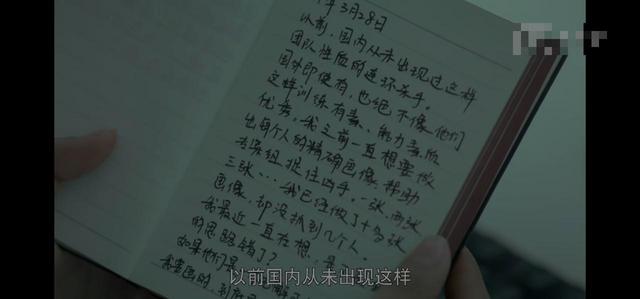 年3月28日
以前，国内从未出现过这样
团队性质的连环杀手。
国外即使有，也绝不像他们
这样训练有素、能力素质
优秀。我之前一直想要做
出每个人的精确画像，帮助
专案组捉住凶手。一张，两张
三张...我已经做了十多张
画像，却没抓到几个人。
我最近一直在想，是
的思路错了？
如果他们是
以前国内从未出现这样